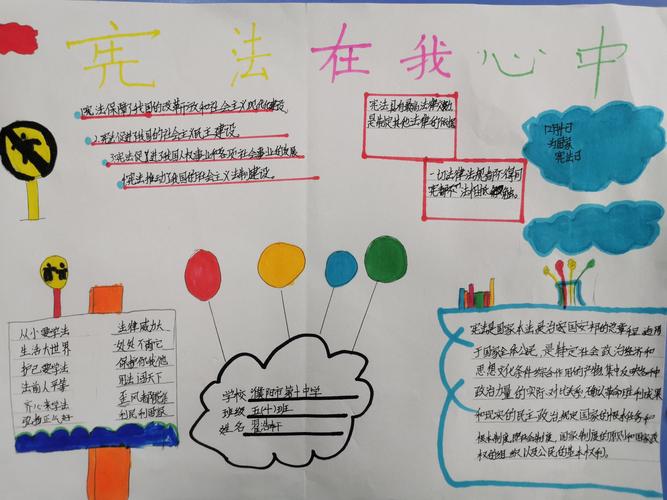 宪法在我心中
1.宪法保障了我国的改革开放和社会主义现代化建设
2.宪法促进我国的社会主义民主建设
3.宪法促进我国人权事业和各项社会事业的发展
4.宪法推动了我国的社会主义法制建设。
宪法具有最高法律效力
是制定其他法律的依据
一切法律法规都不得同
宪法相抵触
12月4日
为国家
宪法日
从小要学法
生活大世界
护己要学法
法前人平等
齐心来学法
法律威力大
处处不离它
保护你我他
用法闯天下
利民利国家
学校:濮阳市第十中学
班级 五(十)班
姓名 翟浩轩
宪法是国家本法,是治安国安邦的总章程,适用
于国家全体公民,是特定社会政治经济和
思想文化条件综合作用的产物,集中反映各种
政治力量的实际对比关系,确认革命胜利成果
和现实的民主政治,规定国家的根本任务和
根本制度,即社会制度、国家制度的原则和国家政
权的组织以及公民的基本权利。